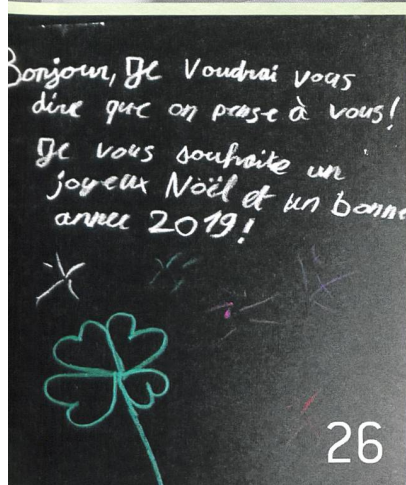 Bonjour, Je Voudrai vous
dire que on pense à vous!
Je vous souhaite un
joyeux Nöël et un bonne
annee 2019!
26